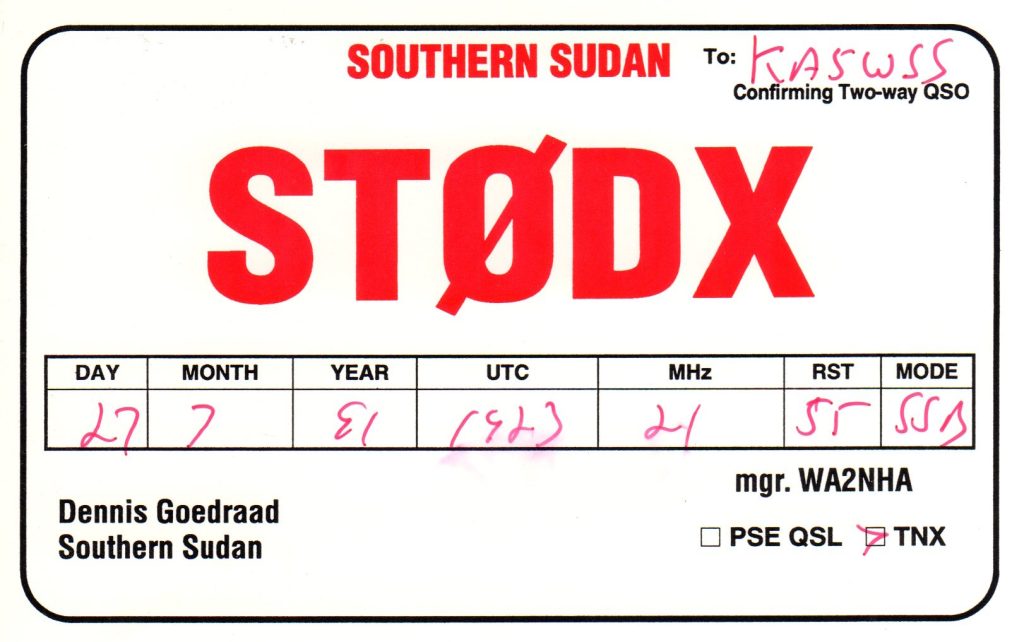 SOUTHERN SUDAN
To: KA5WSS
Confirming Two-way QSO
STØDX
DAY MONTH YEAR UTC MHz RST MODE
27 7 81 1923 21 55 SSB
mgr. WA2NHA
Dennis Goedraad
Southern Sudan
PSE QSL TNX